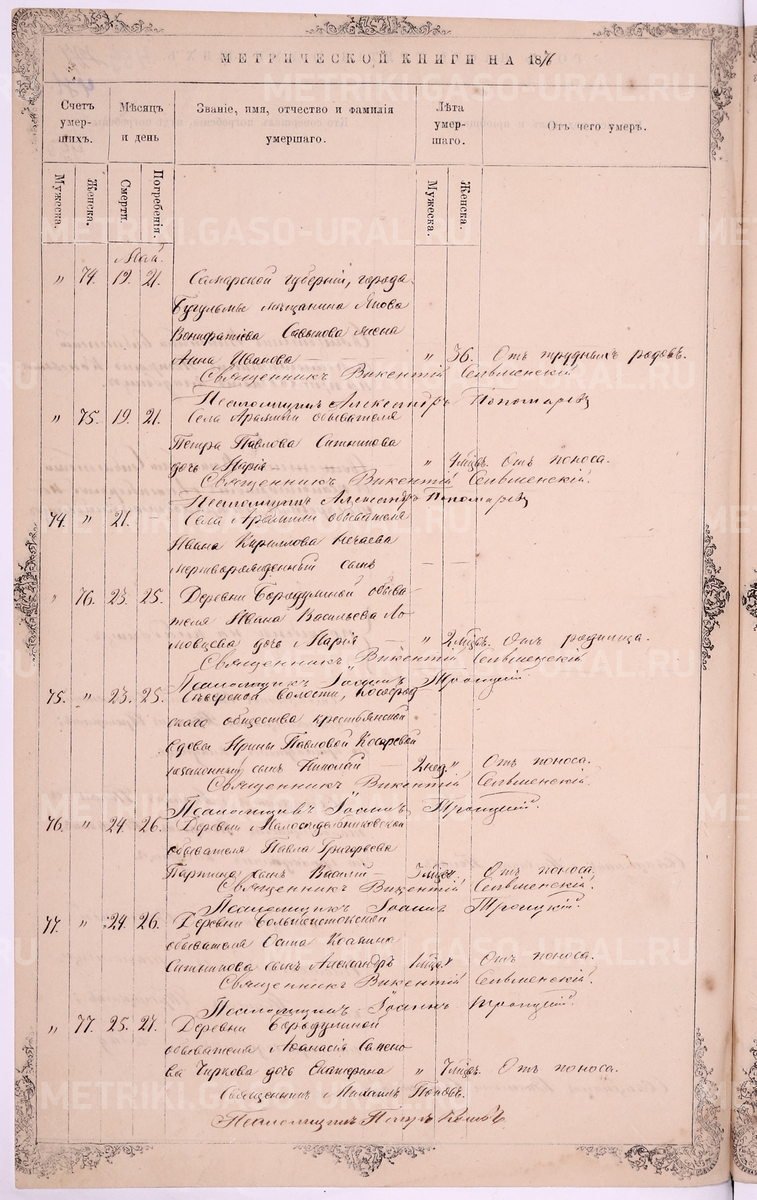 МЕТРИЧЕСКОЙ КНИГИ НА 1876
Счетъ умер- шихъ. Мѣсяцъ и день Званіе, имя, отчество и фамилія умершаго. Лѣта умер- шаго. Отъ чего умеръ.
Мужеска. Женска. Смерти. Погребенія. Мужеска. Женска.
Май.
„ 74. 19. 21. Самарской губерніи, города
Бугульмы мѣщанина
Вонифатіева жена
Анна Иванова — „ 36. Отъ трудныхъ родовъ.
Священникъ Викентій
Псаломщикъ Александръ Пономаревъ
„ 75. 19. 21. Села Арамили обывателя
Петра Павлова Ситникова
дочь Марія „ 4 мѣсц. Отъ поноса.
Священникъ Викентій
Псаломщикъ Александръ Пономаревъ
74. „ 21. Села Арамили обывателя
Ивана Кириллова Нечаева
мертворожденный сынъ — —
„ 76. 23. 25. Деревни Бородулиной обыва-
теля Ивана Васильева
дочь Марія — „ 2 мѣсц. Отъ родимца.
Священникъ Викентій
Псаломщикъ Іоаннъ Троицкій.
75. „ 23. 25. волости,
скаго общества крестьянской
вдовы Ирины Павловой Косаревой
незаконный сынъ Николай — 2 нед. „ Отъ поноса.
Священникъ Викентій
Псаломщикъ Іоаннъ Троицкій.
76. „ 24. 26. Деревни
обывателя Павла Григорьева
сынъ Василій — Отъ поноса.
Священникъ Викентій
Псаломщикъ Іоаннъ Троицкій.
77. „ 24. 26. Деревни Большеистокской
обывателя Осипа
Ситникова сынъ Александръ Отъ поноса.
Священникъ Викентій
Псаломщикъ Іоаннъ Троицкій.
„ 77. 25. 27. Деревни Бородулиной
обывателя Аѳанасія Семено-
ва Чиркова дочь Екатерина „ Отъ поноса.
Священникъ Михаилъ Поповъ.
Псаломщикъ Петръ
METRIKI.GASO-URAL.RU